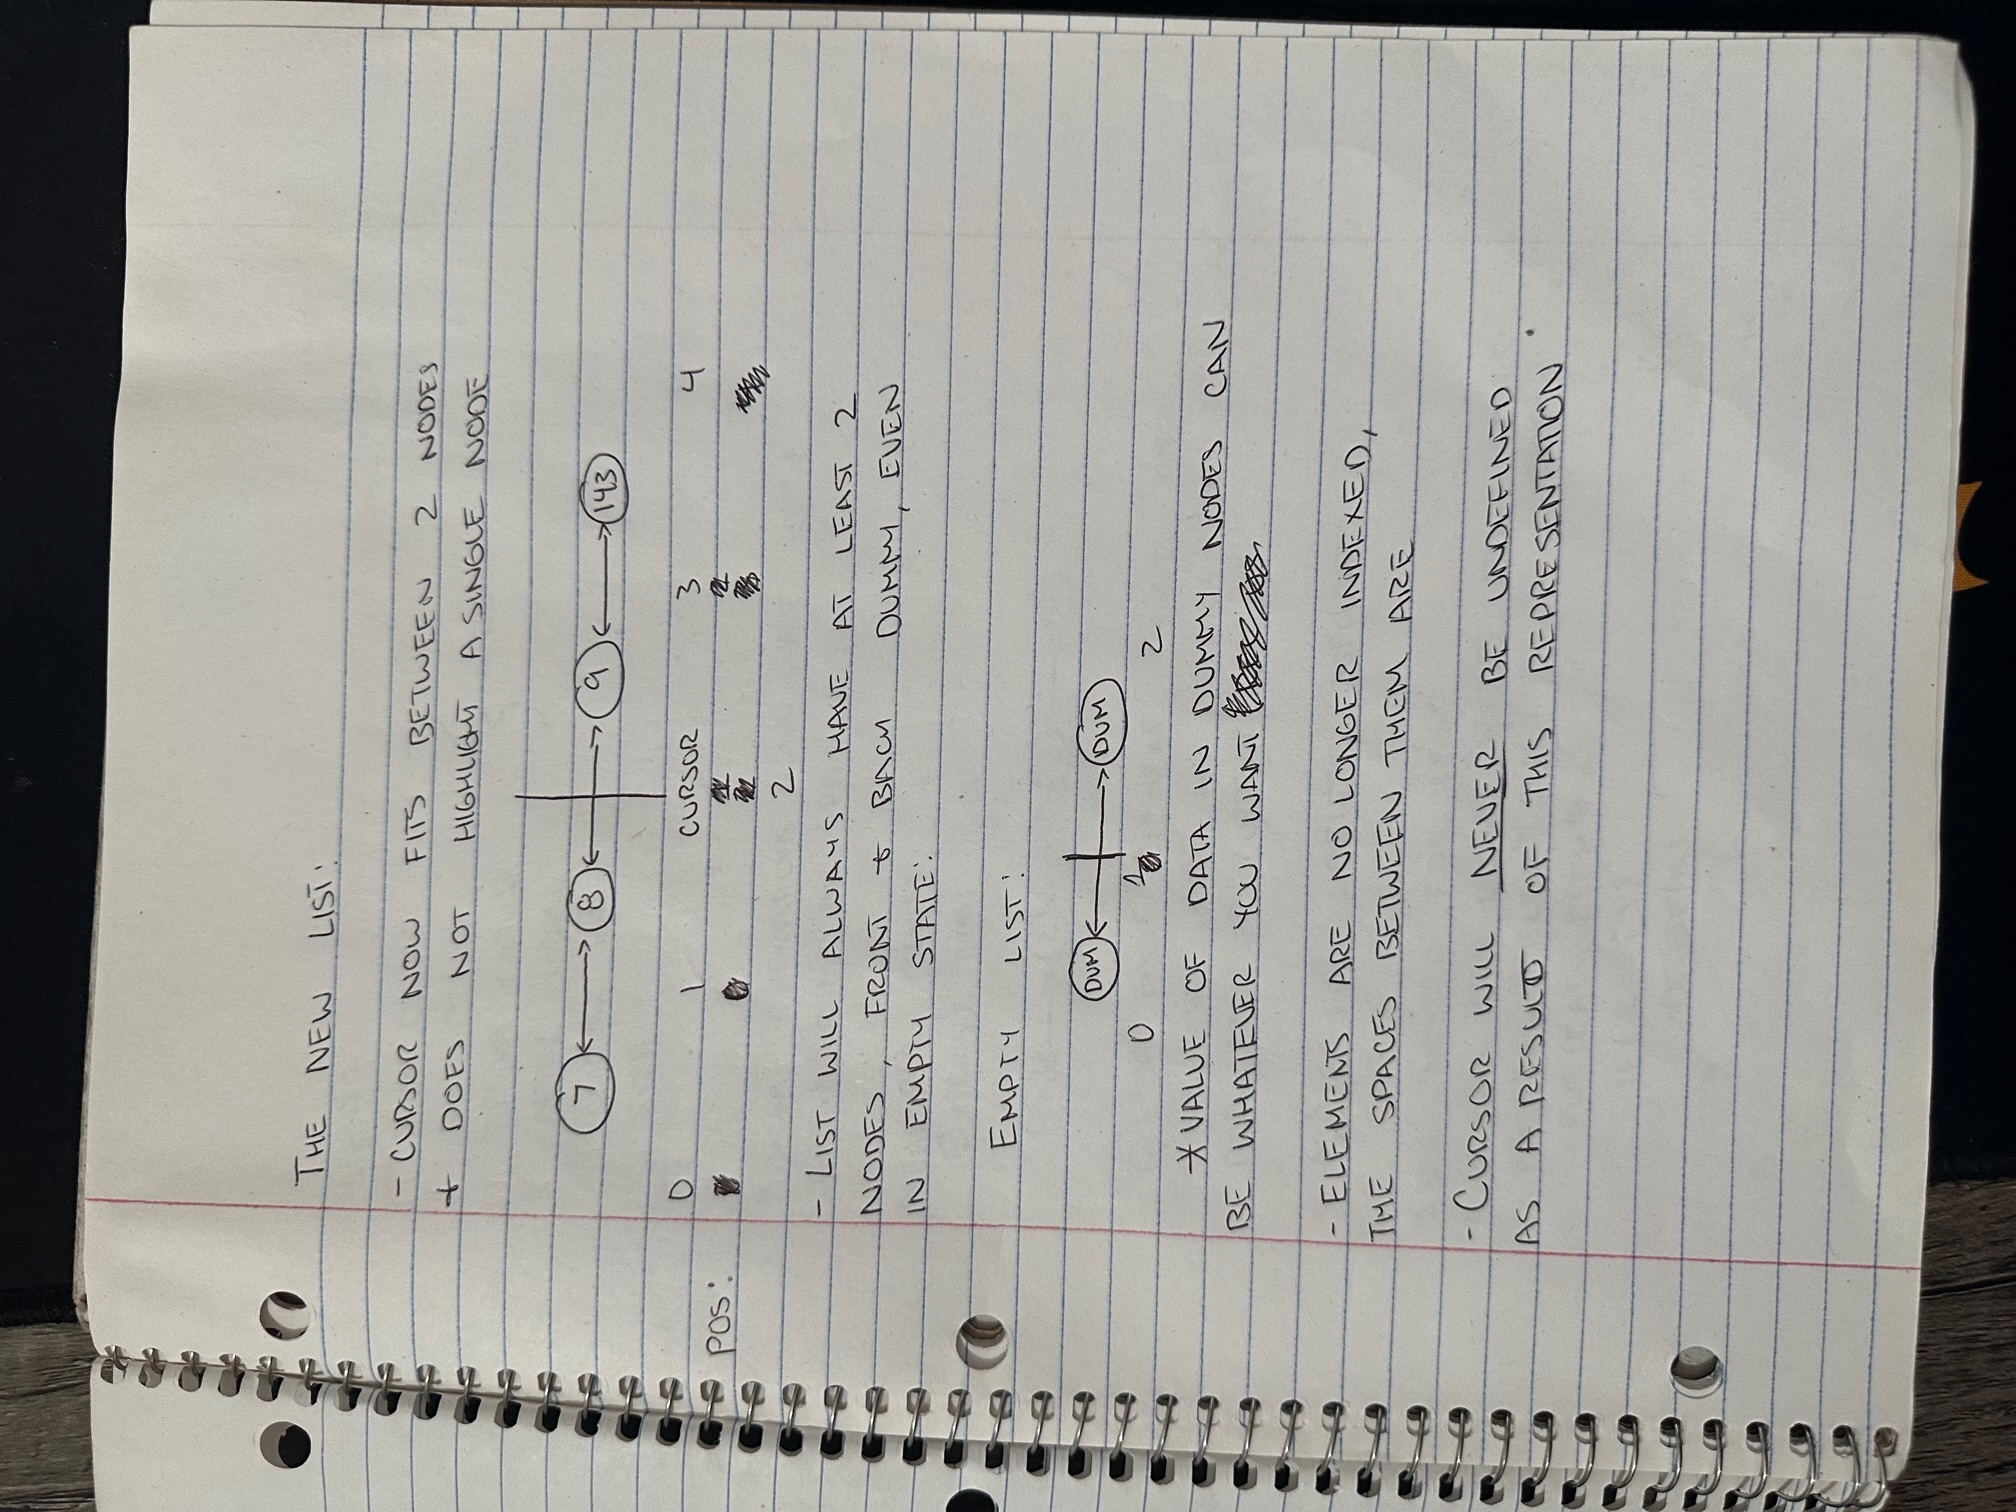 THE NEW LIST:
- CURSOR NOW FITS BETWEEN 2 NODES
+ DOES NOT HIGHLIGHT A SINGLE NODE
7 8 9 143
0 1 CURSOR 3 4
POS:
2
- LIST WILL ALWAYS HAVE AT LEAST 2
NODES, FRONT + BACK DUMMY, EVEN
IN EMPTY STATE:
EMPTY LIST:
DUM DUM
0 1 2
*VALUE OF DATA IN DUMMY NODES CAN
BE WHATEVER YOU WANT
- ELEMENTS ARE NO LONGER INDEXED,
THE SPACES BETWEEN THEM ARE
- CURSOR WILL NEVER BE UNDEFINED
AS A RESULT OF THIS REPRESENTATION